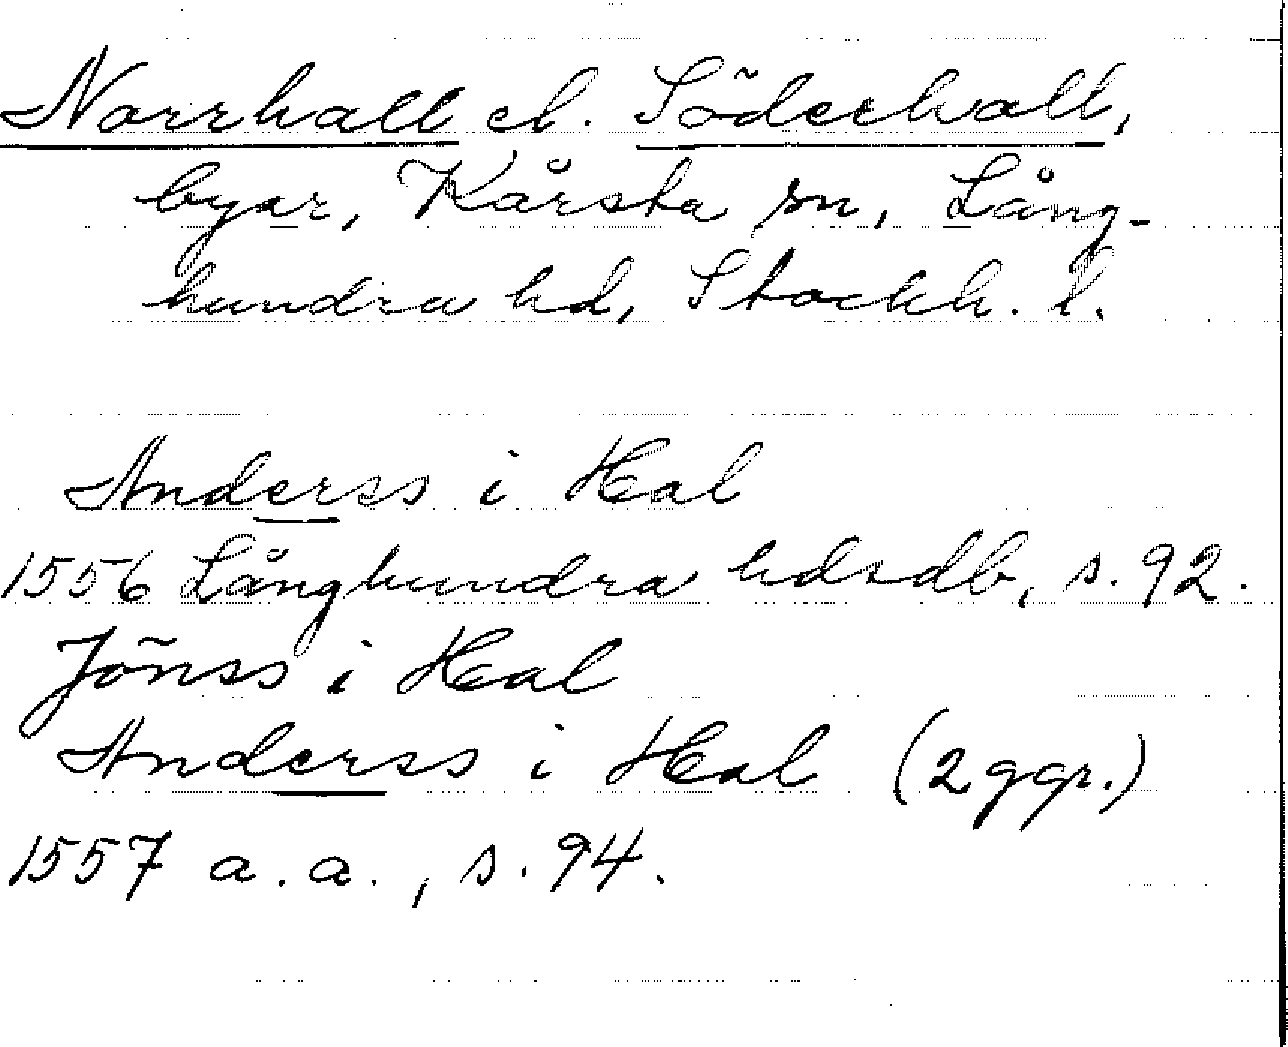 Norrhall el. Söderhall,
byar, Kårsta sn, Lång-
hundra hd, Stockh. l.
Anderss i Hal
1556 Långhundra hdsdb, s. 92.
Jönss i Hal
Anderss i Hal (2 ggr.)
1557 a. a., s. 94.